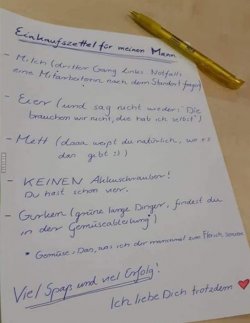 Einkaufszettel für meinen Mann
- Milch (dritter Gang links. Notfalls
eine Mitarbeiterin nach dem Standort fragen)
- Eier (und sag nicht wieder: Die
brauchen wir nicht, die hab ich selbst)
- Mett (dazu weißt du natürlich, wo es
das gibt :-)
- KEINEN Akkuschrauber!
Du hast schon vier.
- Gurken (grüne lange Dinger, findest du
in der Gemüseabteilung*)
* Gemüse: Das, was ich dir manchmal zum Fleisch serviere
Viel Spaß und viel Erfolg!
Ich liebe Dich trotzdem ❤